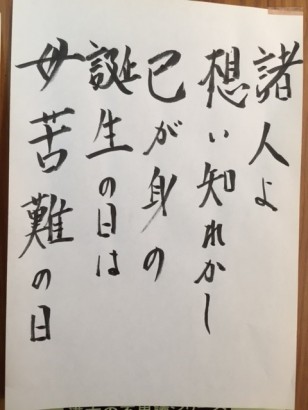 諸人よ
想い知れかし
己が身の
誕生の日は
母苦難の日